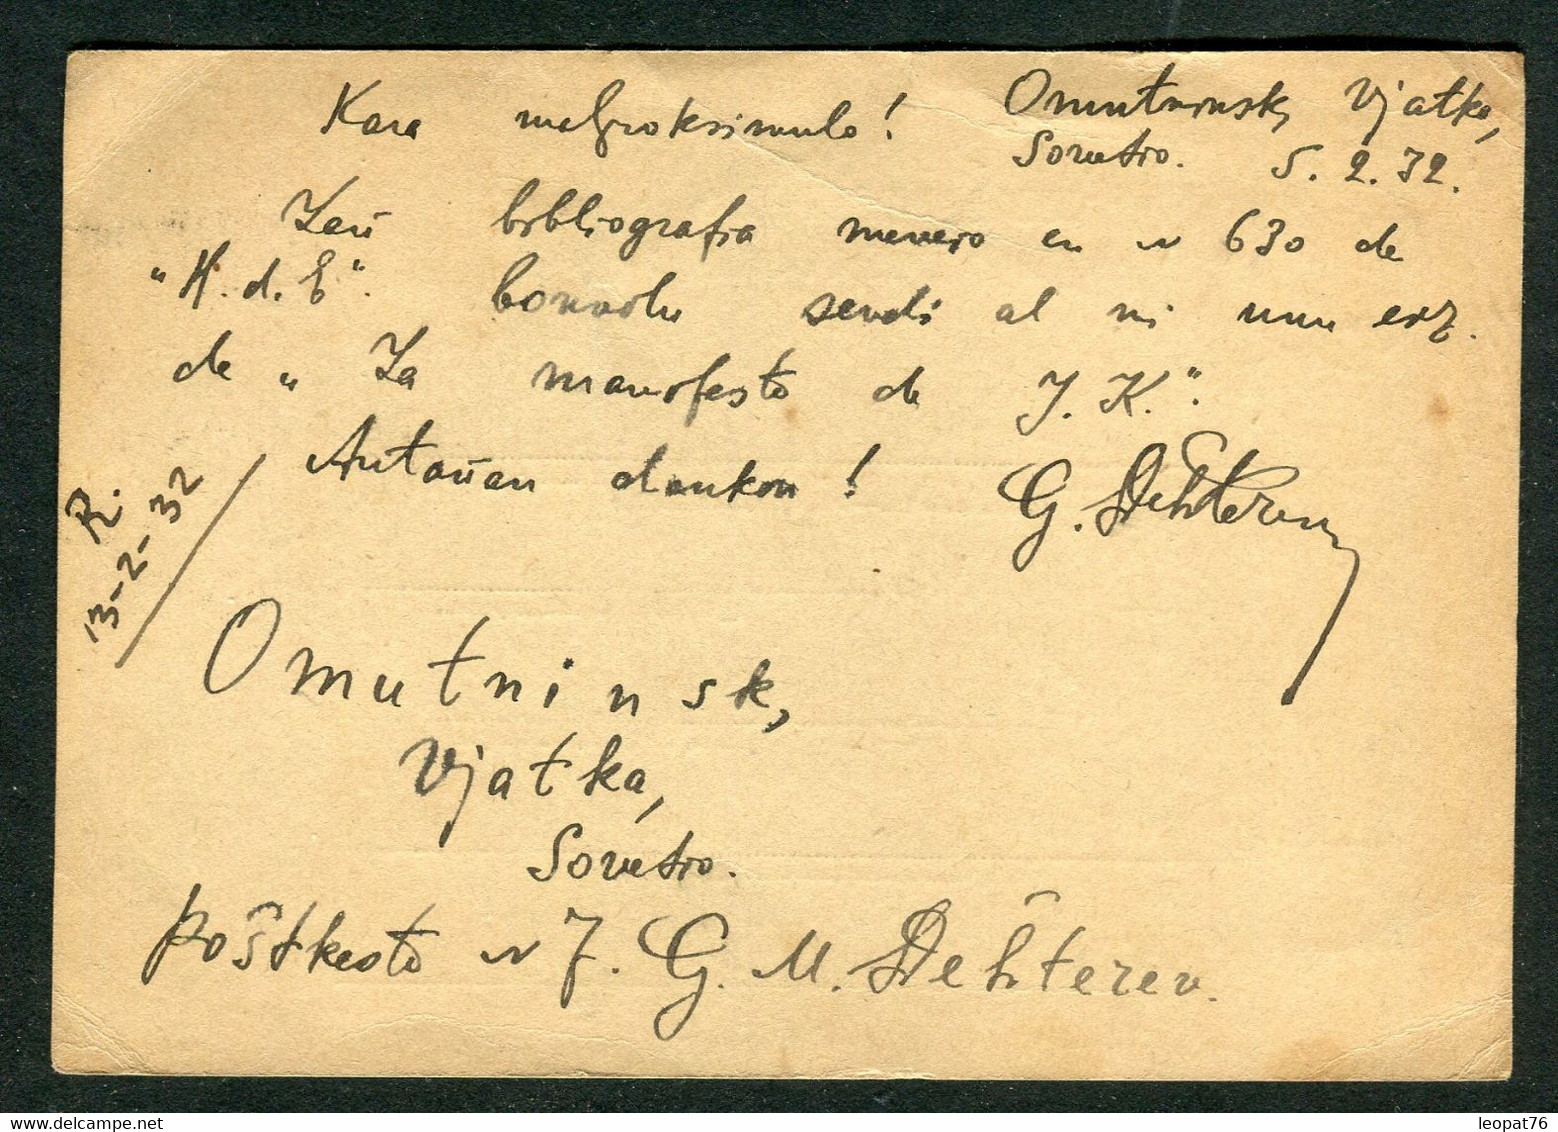 Omutninsk, Vjatka,
Kara malproksimulo! Sovetio. 5.2.32.
Laŭ bibliografia mencio en N 630 de
"H.d.E". bonvolu sendi al mi unu ekz.
de "La manifesto de J.K."
Antaŭan dankon! G. Deĥterev
R.
13-2-32
Omutninsk,
Vjatka,
Sovetio.
poŝtkesto N 7. G. M. Deĥterev.
leopat76